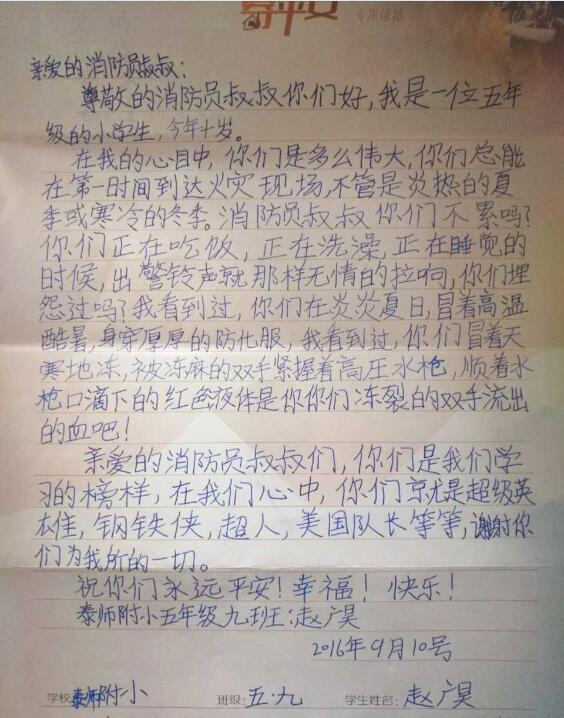 泰平安
专用信纸
亲爱的消防员叔叔：
尊敬的消防员叔叔你们好，我是一位五年
级的小学生，今年十岁。
在我的心目中，你们是多么伟大，你们总能
在第一时间到达火灾现场，不管是炎热的夏
季或寒冷的冬季。消防员叔叔你们不累吗？
你们正在吃饭，正在洗澡，正在睡觉的
时候，出警铃声就那样无情的拉响，你们埋
怨过吗？我看到过，你们在炎炎夏日，冒着高温
酷暑，身穿厚厚的防化服，我看到过，你们冒着天
寒地冻，被冻麻的双手紧握着高压水枪，顺着水
枪口滴下的红色液体是你你们冻裂的双手流出
的血吧！
亲爱的消防员叔叔们，你们是我们学
习的榜样，在我们心中，你们就是超级英
雄，钢铁侠，超人，美国队长等等，谢谢你
们为我所的一切。
祝你们永远平安！幸福！快乐！
泰师附小五年级九班：赵广昊
2016年9月10号
学校：泰师附小 班级：五·九 学生姓名：赵广昊